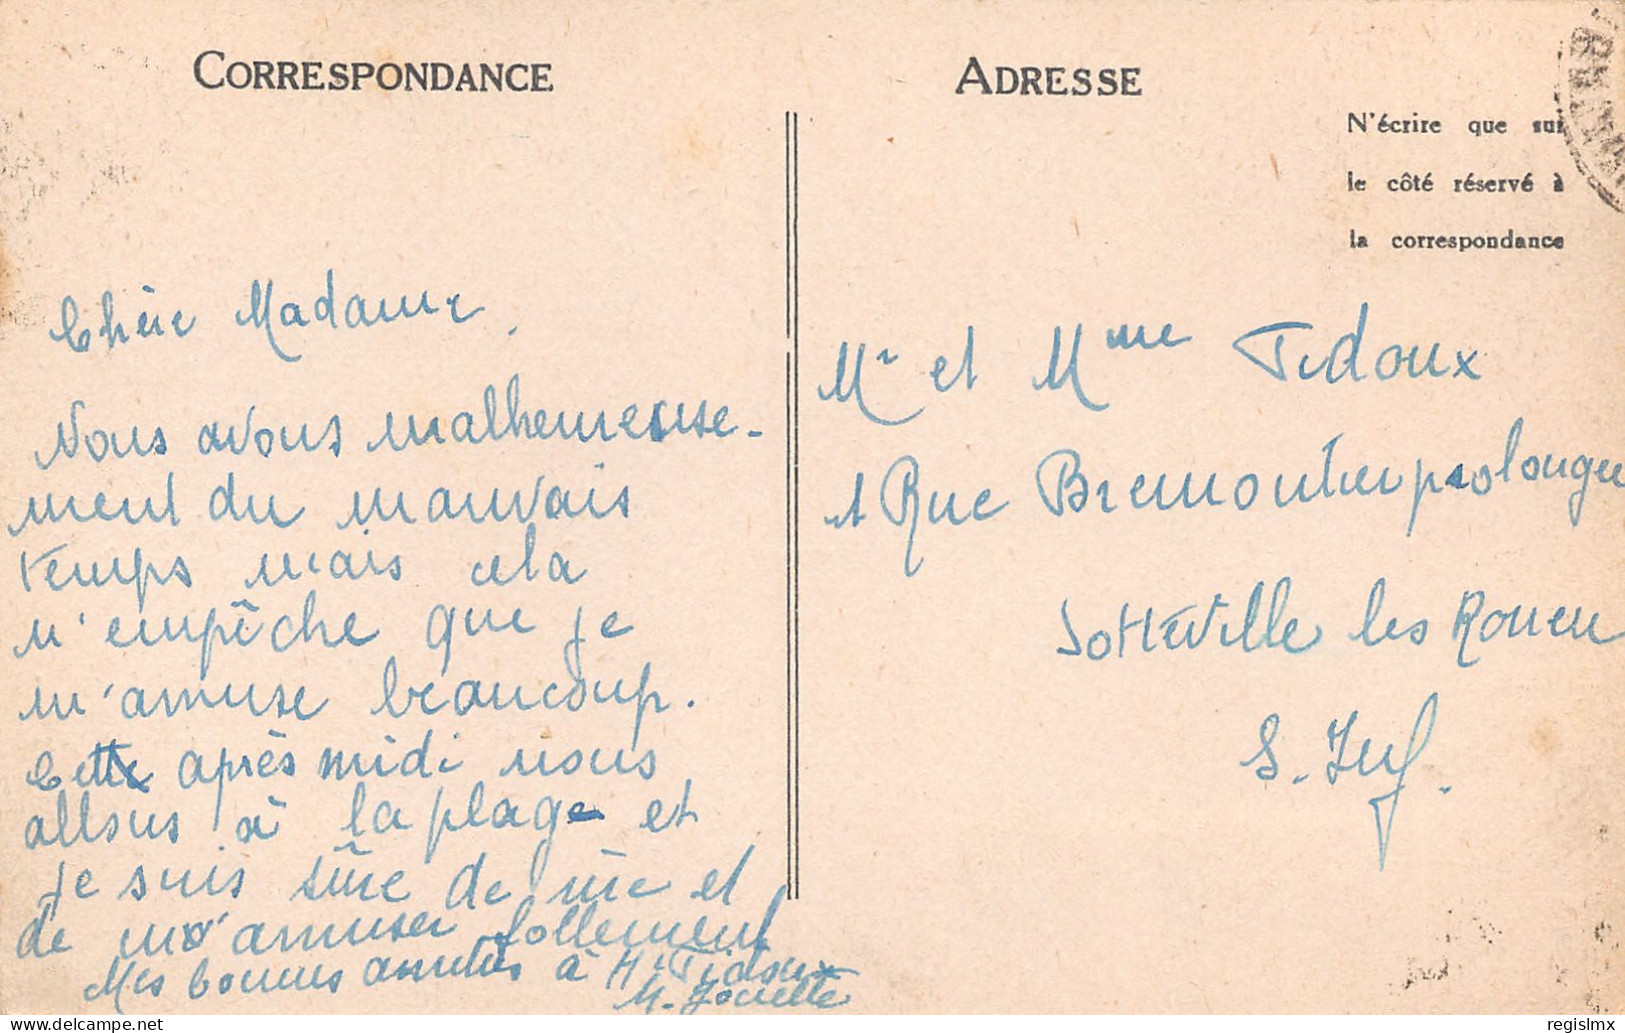 CORRESPONDANCE
Chère Madame,
Nous avons malheureuse-
ment du mauvais
temps mais cela
n'empêche que je
m'amuse beaucoup.
Cette après midi nous
allons à la plage et
je suis sûre de rire et
de m'amuser follement
Mes bonnes amitiés à Mr Tidoux
ADRESSE
N'écrire que sur
le côté réservé à
la correspondance
Mr et Mme Tidoux
1 Rue Bremontier prolongée
Sotteville les Rouen
S. Inf.
delcampe.net
regislmx